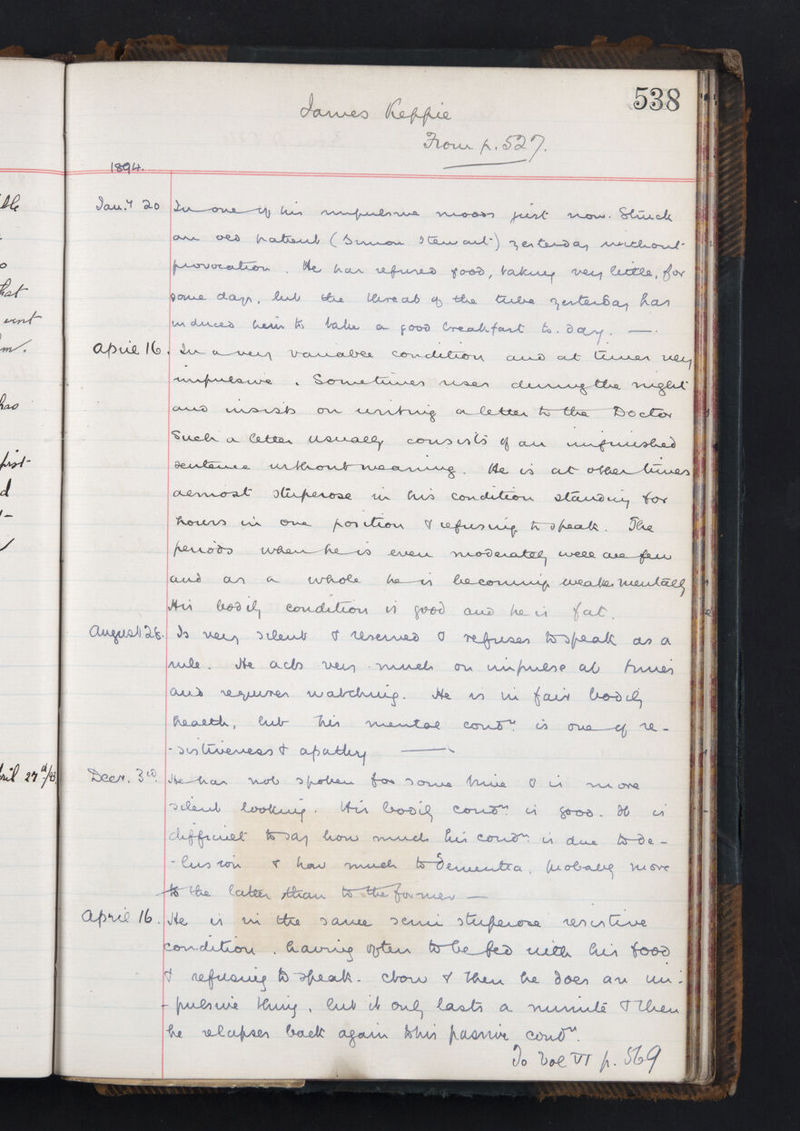 538
James Keppie
From p. 527.
1894.
Jan.y 20 In one of his impulsive moods just now. Struck
an old patient (Simon Stewart) yesterday without
provocation. He has refused food, taking very little, for
some days, but the threat of the tube yesterday has
induced him to take a good breakfast to-day. —
April 16. In a very variable condition and at times very
impulsive. Sometimes rises during the night
and insists on writing a letter to the Doctor
Such a letter usually consists of an unfinished
sentence without meaning. He is at other times
almost stuporose in his condition standing for
hours in one position & refusing to speak. The
periods when he is even moderately well are few
and as a whole he is becoming weaker mentally
His bodily condition is good and he is fat.
August 28. Is very silent & reserved & refuses to speak as a
rule. He acts very much on impulse at times
and requires watching. He is in fair bodily
health, but his mental condn. is one of re-
-sistiveness & apathy —
Decr. 3rd. He has not spoken for some time & is more
silent looking. His bodily condn. is good. It is
difficult to say how much his condn. is due to de-
-lusion & how much to dementia, probably more
to the latter than to the former —
April 16. He is in the same semi stuporose resistive
condition, having often to be fed with his food
& refusing to speak. Now & then he does an im-
-pulsive thing, but it only lasts a minute & then
he relapses back again to his passive condn.
To Vol VI p. 569
ble
hat
went
m.
has
first
d
April 27th/